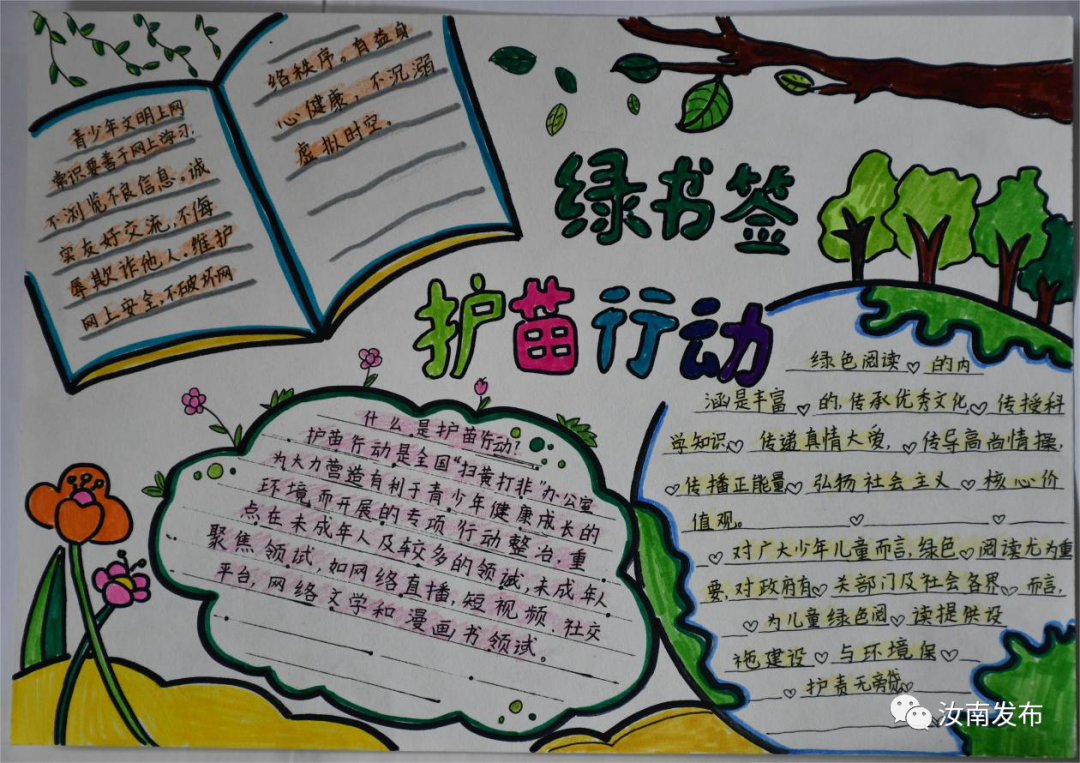 青少年文明上网
常识要善于网上学习,
不浏览不良信息。诚
实友好交流,不侮
辱欺诈他人。维护
网上安全,不破坏网
络秩序。有益身
心健康,不沉溺
虚拟时空。
绿书签
护苗行动
什么是护苗行动?
护苗行动是全国"扫黄打非"办公室
为大力营造有利于青少年健康成长的
环境而开展的专项行动整治,重
点在未成年人及较多的领试,未成年人
聚焦领试,如网络直播,短视频、社交
平台,网络文学和漫画书领试。
绿色阅读♡的内
涵是丰富♡的,传承优秀文化♡传授科
学知识♡传递真情大爱,♡传导高尚情操,
♡传播正能量♡弘扬社会主义♡核心价
值观。♡♡
♡对广大少年儿童而言,绿色♡阅读尤为重
要,对政府有♡关部门及社会各界♡而言,
♡为儿童绿色阅♡读提供设
施建设♡与环境保♡
♡护责无旁贷♡
汝南发布